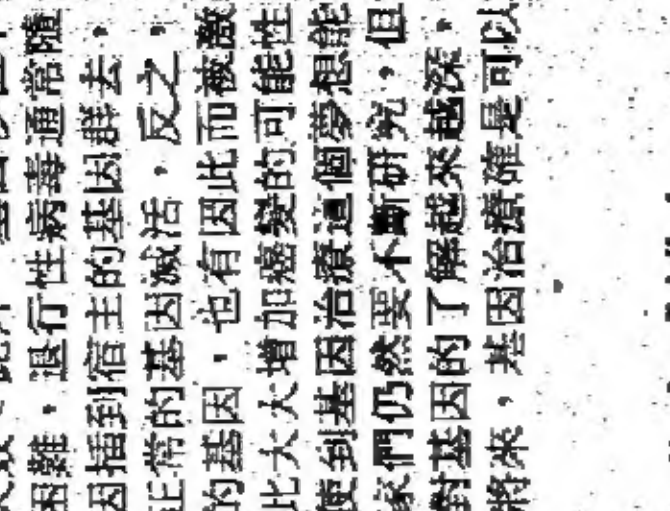 困難，退行性病毒通常隨
因插到宿主的基因群去，
正常的基因滅活，反之，
的基因，也有因此而被激
此大大增加癌變的可能性
使到基因治療這個夢想能
家們仍然要不斷研究，但
對基因的了解越來越深，
將來，基因治療確是可以